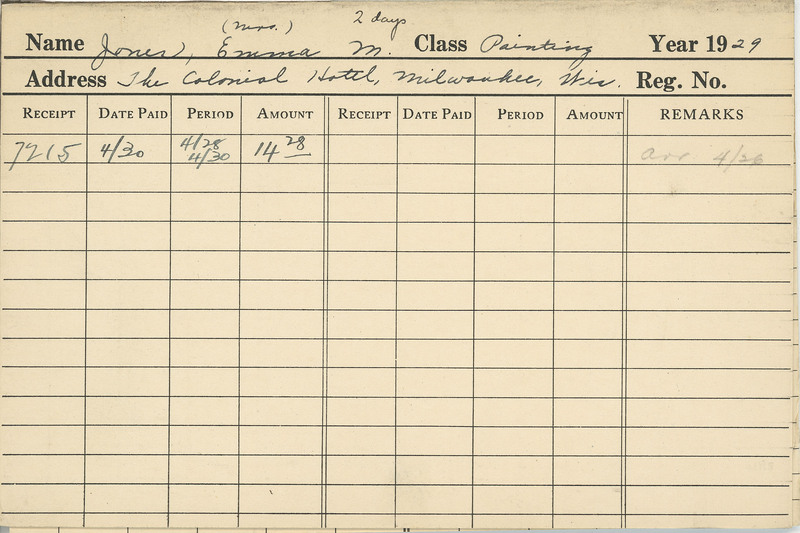 (Mrs.) 2 days
Name Jones, Emma M. Class Painting Year 1929
Address The Colonial Hotel, Milwaukee, Wis. Reg. No.
RECEIPT DATE PAID PERIOD AMOUNT RECEIPT DATE PAID PERIOD AMOUNT REMARKS
7215 4/30 4/28 14 28 arr 4/26
4/30